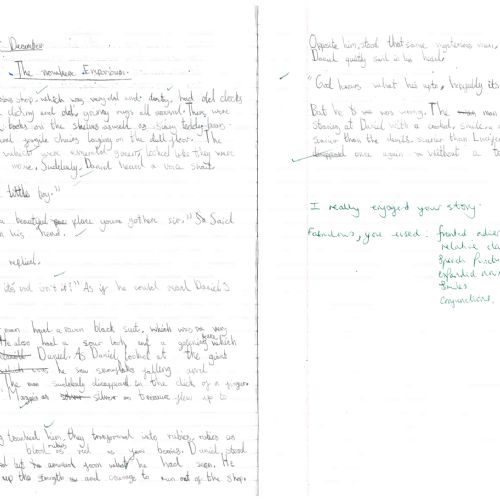 December
The nowhere Emporium.
shop, which was very old and dusty, had old clocks
ticking and old, groovy rugs all around. There were
books on the shelves aswell as scary teddy bears
and fragile chairs laying on the dull floor. The
which were green, looked like they were
move. Suddenly, Daniel heard a voice shout
little boy."
a beautiful place youve gotten sir." Said
in his head.
replied.
its old isn't it?" As if he could read Daniel's
man had a raven black suit, which was very
He also had a sour look and a which
Daniel. As Daniel looked at the giant
he saw snowflakes falling apart
The man suddenly disappeared in the click of a finger.
as silver as treasure flew up to
touched him, they transformed into rubies, rubies as
blood, rubies as red as your berries. Daniel stood
but amazed from what he had seen. He
up the strength and courage to run out of the shop.
Opposite him, stood that same mysterious man,
Daniel quietly said in his head.
"God knows what hes upto, hopefully its
But he was wrong. The man
staring at Daniel with a crooked, smile, a
scarier than the devils, scarier than Lucifer
once again without a
I really engaged your story.
Fabulous, you used: fronted adver
relative cla
Speech punctu
expanded nou
Similes
conjunctions.